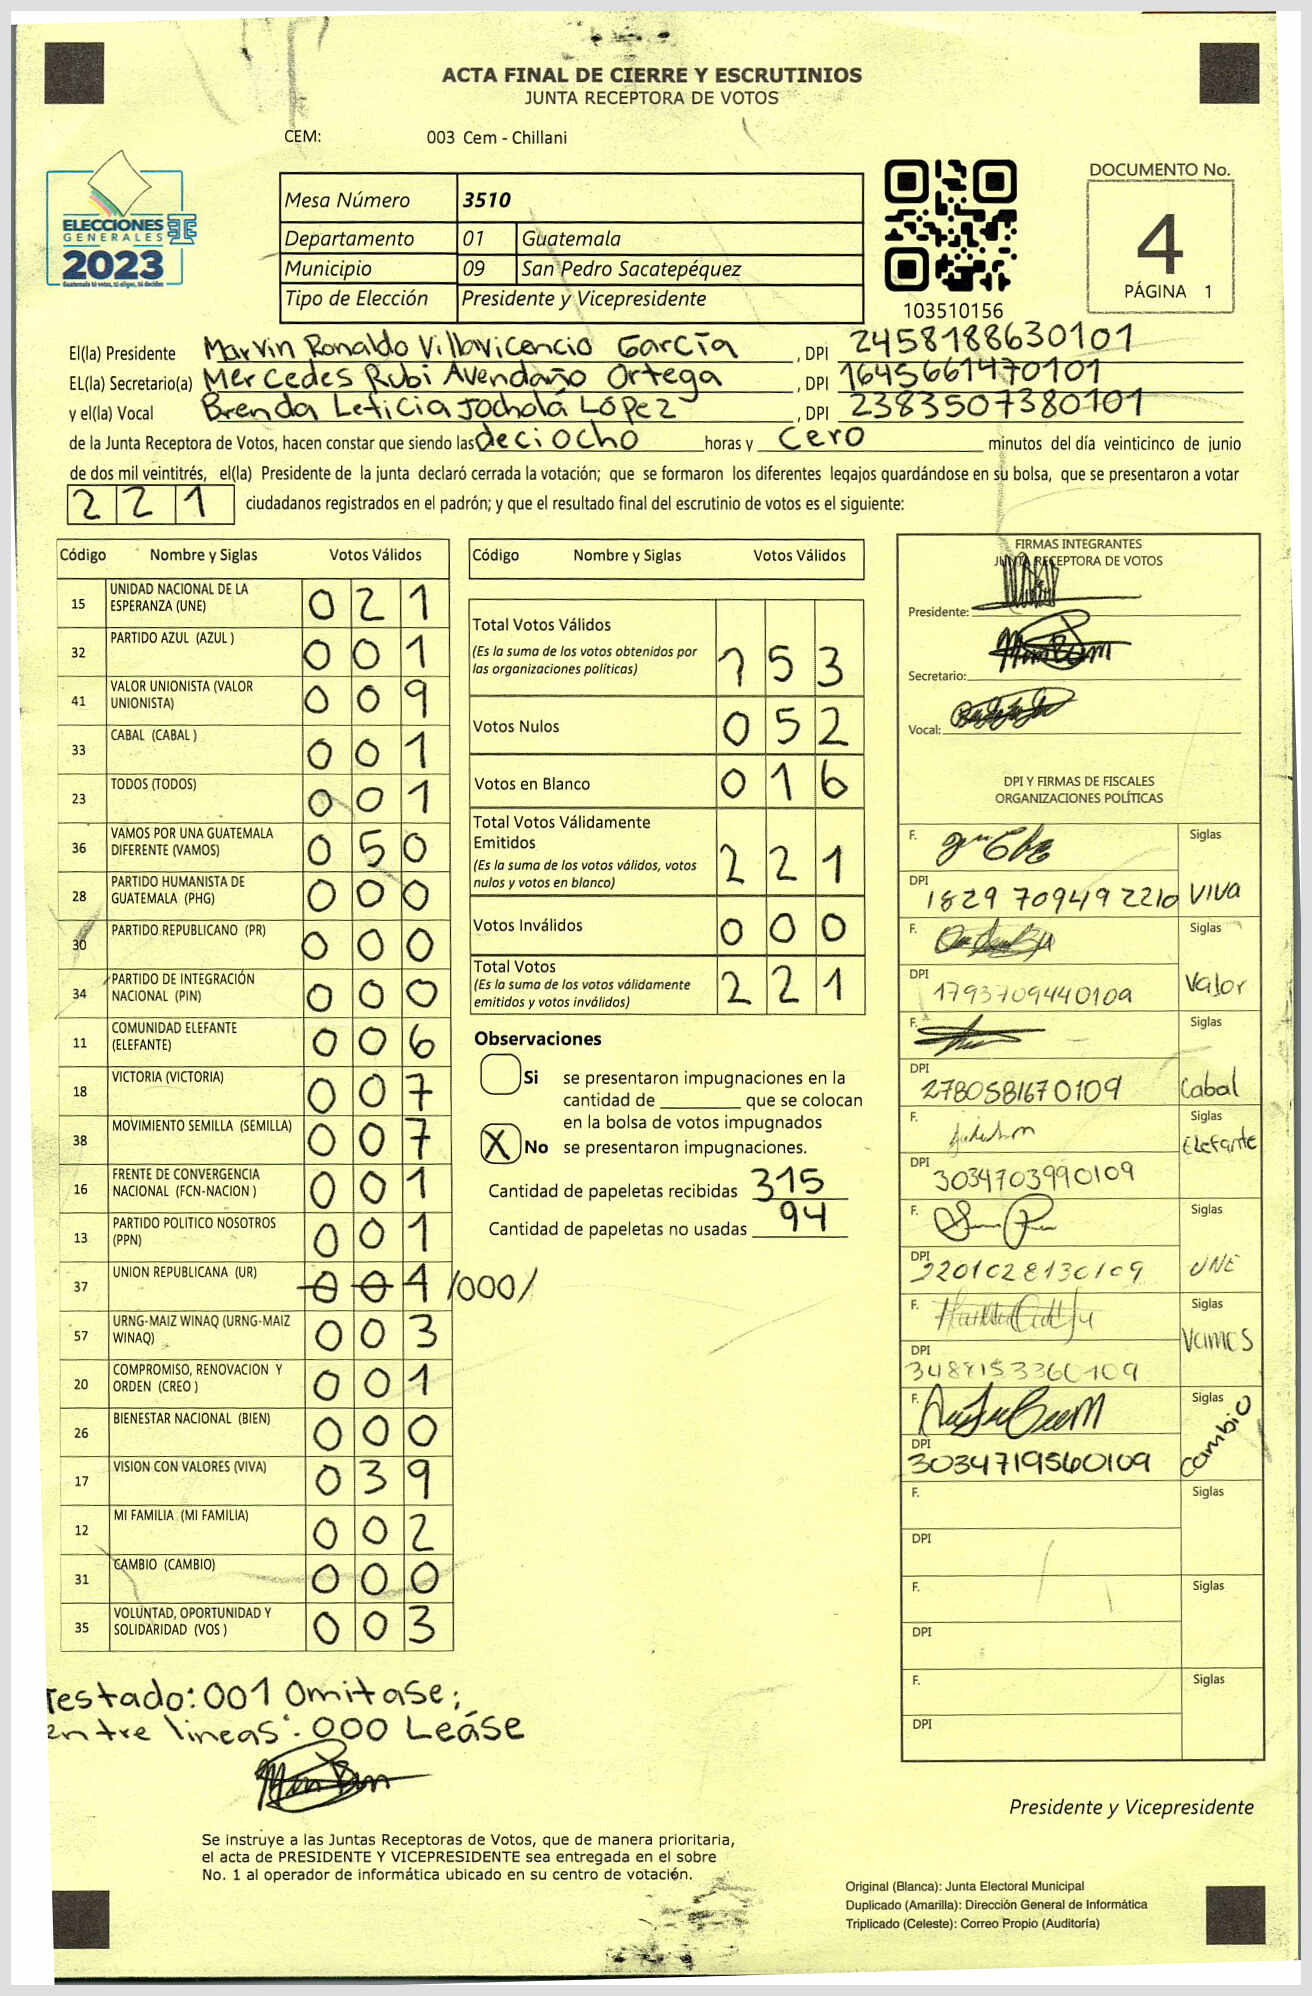 ACTA FINAL DE CIERRE Y ESCRUTINIOS
JUNTA RECEPTORA DE VOTOS
CEM: 003 Cem - Chillani
ELECCIONES
GENERALES
2023
Guatemala tú votas, tú eliges, tú decides
Mesa Número 3510
Departamento 01 Guatemala
Municipio 09 San Pedro Sacatepéquez
Tipo de Elección Presidente y Vicepresidente
103510156
DOCUMENTO No.
4
PÁGINA 1
El(la) Presidente Marvin Ronaldo Villavicencio García , DPI 2458188630101
EL(la) Secretario(a) Mercedes Rubi Avendaño Ortega , DPI 1645661470101
y el(la) Vocal Brenda Leticia Jocholá López , DPI 2383507380101
de la Junta Receptora de Votos, hacen constar que siendo las deciocho horas y cero minutos del día veinticinco de junio
de dos mil veintitrés, el(la) Presidente de la junta declaró cerrada la votación; que se formaron los diferentes legajos guardándose en su bolsa, que se presentaron a votar
221 ciudadanos registrados en el padrón; y que el resultado final del escrutinio de votos es el siguiente:
Código Nombre y Siglas Votos Válidos
15 UNIDAD NACIONAL DE LA ESPERANZA (UNE) 021
32 PARTIDO AZUL (AZUL ) 001
41 VALOR UNIONISTA (VALOR UNIONISTA) 009
33 CABAL (CABAL ) 001
23 TODOS (TODOS) 001
36 VAMOS POR UNA GUATEMALA DIFERENTE (VAMOS) 050
28 PARTIDO HUMANISTA DE GUATEMALA (PHG) 000
30 PARTIDO REPUBLICANO (PR) 000
34 PARTIDO DE INTEGRACIÓN NACIONAL (PIN) 000
11 COMUNIDAD ELEFANTE (ELEFANTE) 006
18 VICTORIA (VICTORIA) 007
38 MOVIMIENTO SEMILLA (SEMILLA) 007
16 FRENTE DE CONVERGENCIA NACIONAL (FCN-NACION ) 001
13 PARTIDO POLITICO NOSOTROS (PPN) 001
37 UNION REPUBLICANA (UR) 001 /000/
57 URNG-MAIZ WINAQ (URNG-MAIZ WINAQ) 003
20 COMPROMISO, RENOVACION Y ORDEN (CREO ) 001
26 BIENESTAR NACIONAL (BIEN) 000
17 VISION CON VALORES (VIVA) 039
12 MI FAMILIA (MI FAMILIA) 002
31 CAMBIO (CAMBIO) 000
35 VOLUNTAD, OPORTUNIDAD Y SOLIDARIDAD (VOS ) 003
Testado: 001 Omitase;
entre lineas: 000 Leáse
Código Nombre y Siglas Votos Válidos
Total Votos Válidos
(Es la suma de los votos obtenidos por
las organizaciones politicas) 153
Votos Nulos 052
Votos en Blanco 016
Total Votos Válidamente
Emitidos
(Es la suma de los votos válidos, votos
nulos y votos en blanco) 221
Votos Inválidos 000
Total Votos
(Es la suma de los votos válidamente
emitidos y votos inválidos) 221
Observaciones
Si se presentaron impugnaciones en la
cantidad de ________ que se colocan
en la bolsa de votos impugnados
X No se presentaron impugnaciones.
Cantidad de papeletas recibidas 315
Cantidad de papeletas no usadas 94
FIRMAS INTEGRANTES
JUNTA RECEPTORA DE VOTOS
Presidente:
Secretario:
Vocal:
DPI Y FIRMAS DE FISCALES
ORGANIZACIONES POLÍTICAS
F. Siglas
DPI 1829 709449 2210 VIVA
F. Siglas
DPI 1793709440109 Valor
F. Siglas
DPI 2780581670109 Cabal
F. Siglas
DPI 3034703990109 Elefante
F. Siglas
DPI 2201028130109 UNE
F. Siglas
DPI 3488153360109 Vamos
F. Siglas
DPI 3034719560109 cambio
F. Siglas
DPI
F. Siglas
DPI
F. Siglas
DPI
Presidente y Vicepresidente
Se instruye a las Juntas Receptoras de Votos, que de manera prioritaria,
el acta de PRESIDENTE Y VICEPRESIDENTE sea entregada en el sobre
No. 1 al operador de informática ubicado en su centro de votación.
Original (Blanca): Junta Electoral Municipal
Duplicado (Amarilla): Dirección General de Informática
Triplicado (Celeste): Correo Propio (Auditoría)